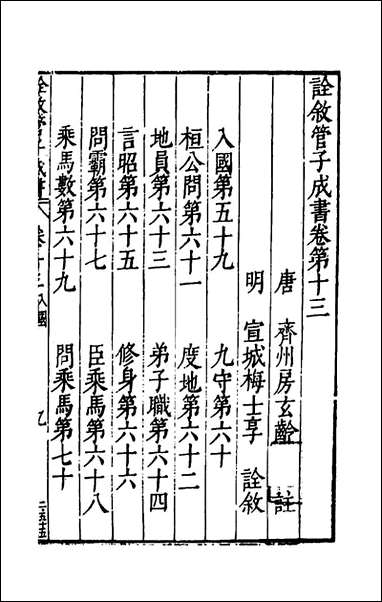 詮敘管子成書卷第十三
唐 齊州房玄齡 註
明 宣城梅士享 詮敘
入國第五十九 九守第六十
桓公問第六十一 度地第六十二
地員第六十三 弟子職第六十四
言昭第六十五 修身第六十六
問霸第六十七 臣乘馬第六十八
乘馬數第六十九 問乘馬第七十
詮敘管子成書 卷十三 入國